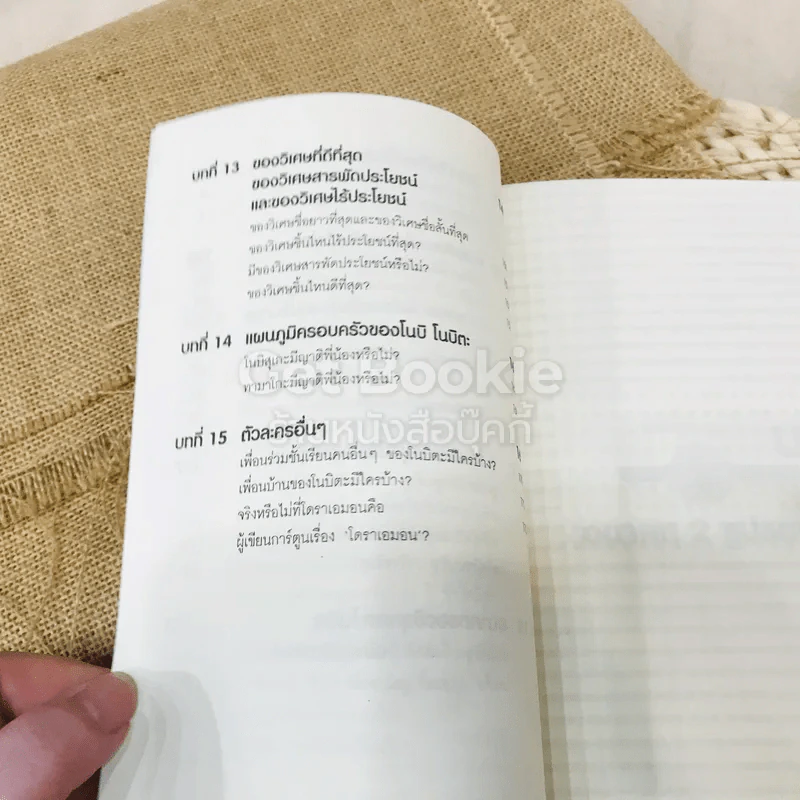 บทที่ 13 ของวิเศษที่ดีที่สุด
ของวิเศษสารพัดประโยชน์
และของวิเศษไร้ประโยชน์
ของวิเศษชื่อยาวที่สุดและของวิเศษชื่อสั้นที่สุด
ของวิเศษชิ้นไหนไร้ประโยชน์ที่สุด?
มีของวิเศษสารพัดประโยชน์หรือไม่?
ของวิเศษชิ้นไหนดีที่สุด?
บทที่ 14 แผนภูมิครอบครัวของโนบิ โนบิตะ
โนบิสุเกะมีญาติพี่น้องหรือไม่?
ทามาโกะมีญาติพี่น้องหรือไม่?
Get Bookie
ร้านหนังสือบุ๊คกี้
บทที่ 15 ตัวละครอื่นๆ
เพื่อนร่วมชั้นเรียนคนอื่นๆ ของโนบิตะมีใครบ้าง?
เพื่อนบ้านของโนบิตะมีใครบ้าง?
จริงหรือไม่ที่โดราเอมอนคือ
ผู้เขียนการ์ตูนเรื่อง 'โดราเอมอน'?